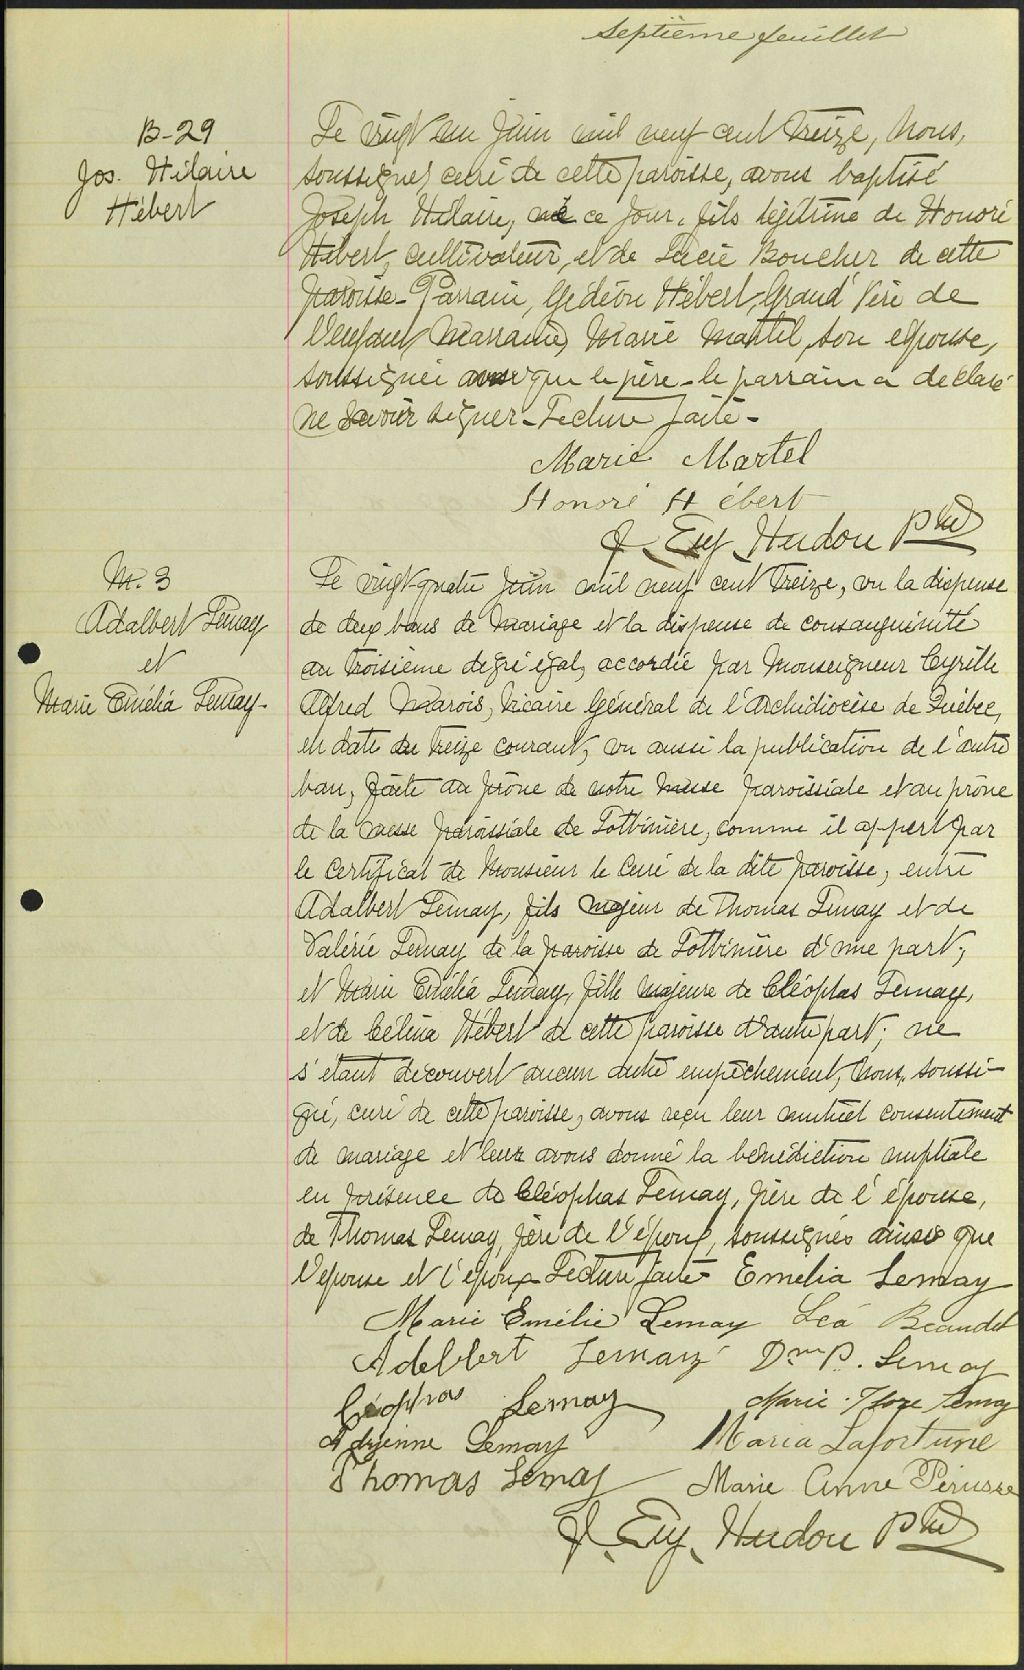 Septième feuillet
B-29
Jos. Hilaire
Hébert
Le vingt un Juin mil neuf cent treize, Nous,
soussigné, curé de cette paroisse, avons baptisé
Joseph Hilaire, né ce jour, fils légitime de Honoré
Hébert, cultivateur, et de Lucie Boucher de cette
paroisse - Parrain, Gédéon Hébert, Grand Père de
l'enfant, Marraine, Marie Martel, son épouse,
soussignée ainsi que le père - le parrain a déclaré
ne savoir signer - Lecture faite -
Marie Martel
Honoré Hébert
J. Eug. Hudon Ptre
M. 3
Adalbert Lemay
et
Marie Emélia Lemay -
Le vingt-quatre Juin mil neuf cent treize, vu la dispense
de deux bans de mariage et la dispense de consanguinité
au troisième degré égal, accordée par Monseigneur Cyrille
Alfred Marois, Vicaire Général de l'Archidiocèse de Québec,
en date du treize courant, vu aussi la publication de l'autre
ban, faite au prône de notre messe paroissiale et au prône
de la messe paroissiale de Lotbinière, comme il appert par
le certificat de Monsieur le Curé de la dite paroisse, entre
Adalbert Lemay, fils majeur de Thomas Lemay et de
Valérie Lemay de la paroisse de Lotbinière d'une part;
et Marie Emélia Lemay, fille majeure de Cléophas Lemay,
et de Célina Hébert de cette paroisse d'autre part; ne
s'étant découvert aucun autre empêchement, Nous, soussi-
gné, curé de cette paroisse, avons reçu leur mutuel consentement
de mariage et leur avons donné la bénédiction nuptiale
en présence de Cléophas Lemay, père de l'épouse,
de Thomas Lemay, père de l'époux, soussignés ainsi que
l'épouse et l'époux - Lecture faite - Emelia Lemay
Marie Emélie Lemay Léa Beaudet
Adelbert Lemay Dme P. Lemay
Cléophas Lemay Marie - Flore Lemay
Adrienne Lemay Maria Lafortune
Thomas Lemay Marie Anne Pérusse
J. Eug. Hudon Ptre